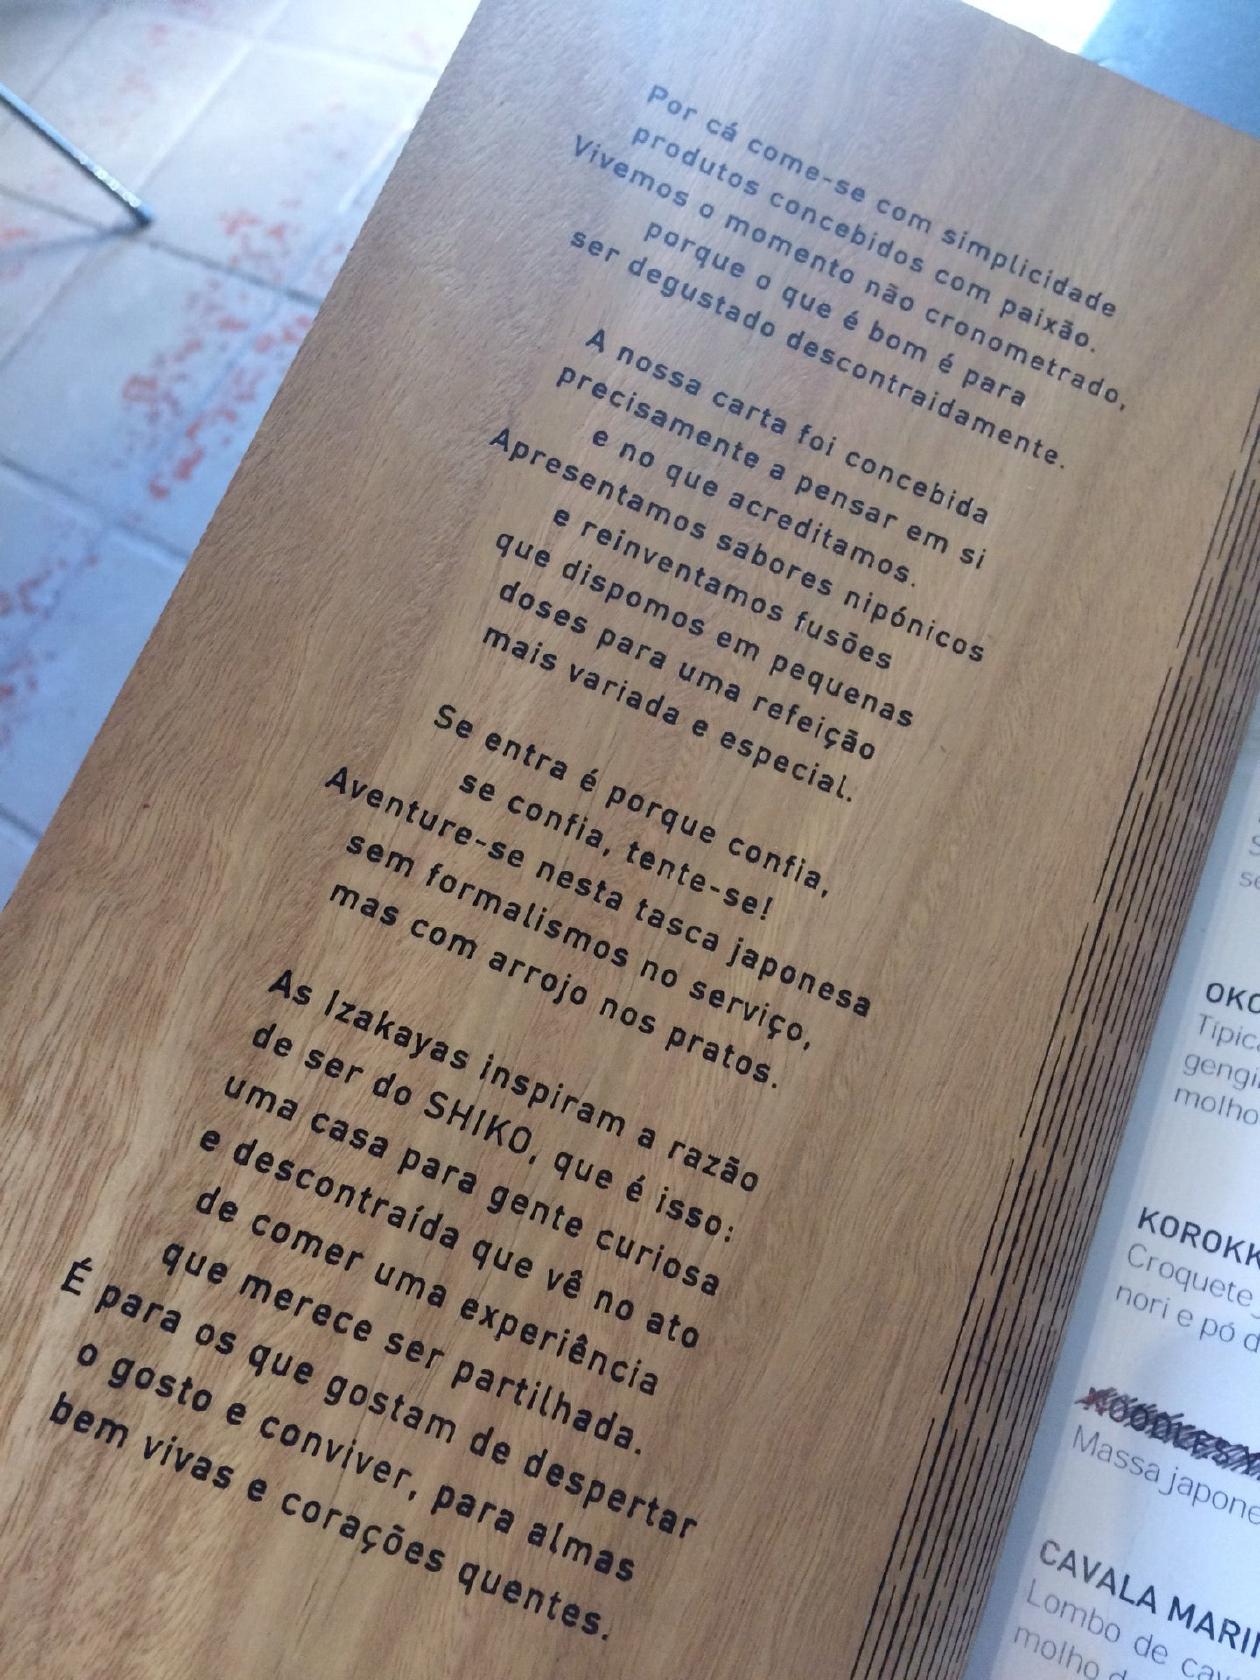 Por cá come-se com simplicidade
produtos concebidos com paixão.
Vivemos o momento não cronometrado,
porque o que é bom é para
ser degustado descontraidamente.
A nossa carta foi concebida
precisamente a pensar em si
e no que acreditamos.
Apresentamos sabores nipónicos
e reinventamos fusões
que dispomos em pequenas
doses para uma refeição
mais variada e especial.
Se entra é porque confia,
se confia, tente-se!
Aventure-se nesta tasca japonesa
sem formalismos no serviço,
mas com arrojo nos pratos.
As Izakayas inspiram a razão
de ser do SHIKO, que é isso:
uma casa para gente curiosa
e descontraída que vê no ato
de comer uma experiência
que merece ser partilhada.
É para os que gostam de despertar
o gosto e conviver, para almas
bem vivas e corações quentes.
molho
Croquete
nori e pó
Massa
CAVALA
Lombo de
molho